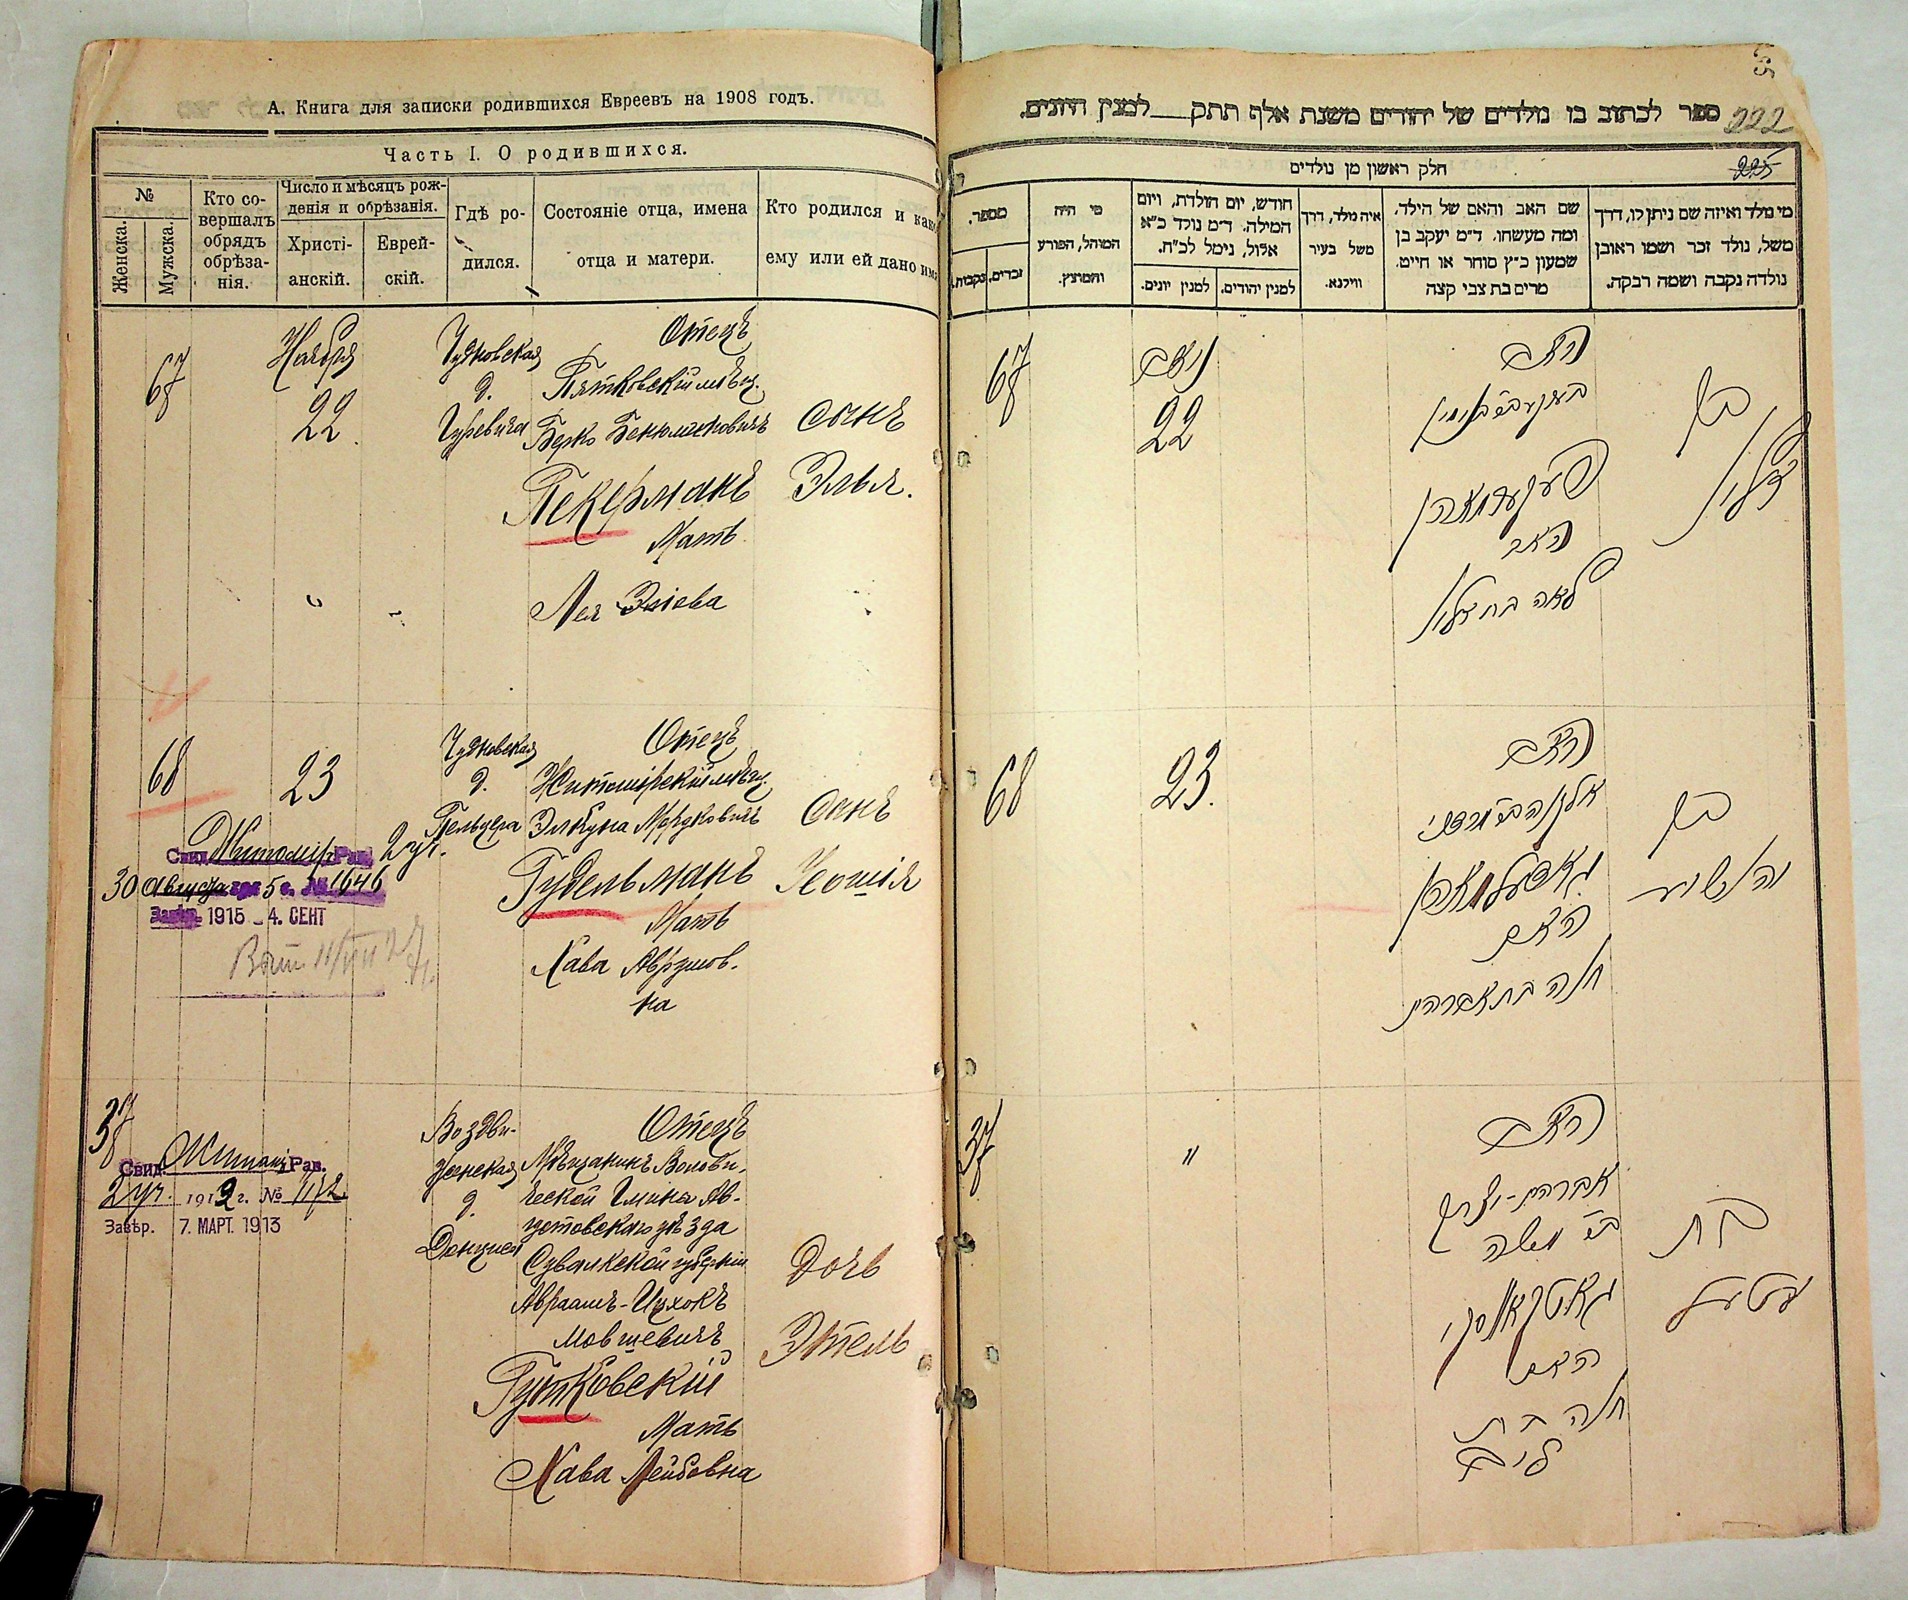 А. Книга для записки родившихся Евреевъ на 1908 годъ.
Часть I. О родившихся.
№
Женска.
Мужска.
Кто со-
вершалъ
обрядъ
обрѣза-
нія.
Число и мѣсяцъ рож-
денія и обрѣзанія.
Христі-
анскій.
Еврей-
скій.
Гдѣ ро-
дился.
Состояніе отца, имена
отца и матери.
Кто родился и како
ему или ей дано имя
67
Ноября
22
Чудновская
д.
Гуревича
Отецъ
Пятковскій мѣщ.
Берко Бенюминовичъ
Пекерманъ
Мать
Лея Эліева
сынъ
Элья.
68
23
Чудновская
д.
Пельцера
Отецъ
Житомірскій мѣщ.
Элкуна Мордковичъ
Гудельманъ
Мать
Хава Аврумов-
на
Сынъ
Іеошія
Свид. Житомір. Рав. 2 уч.
30 Августа 5 г. № 1646
Завѣр. 1915 - 4. СЕНТ
37
Свид. Житомі. Рав.
2 уч. 1912 г. № 1172
Завѣр. 7. МАРТ. 1913
Воздви-
женская
д.
Отецъ
Мѣщанинъ Волови-
ческой Гмины Ав-
густовскаго уѣзда
Сувалкской губерніи
Авраамъ-Ицхокъ
Мовшевичъ
Гутковскій
Мать
Хава Лейбовна
Дочь
Этель
222
225
ספר לכתוב בו נולדים של יהודים משנת אלף תתק למנין היונים.
חלק ראשון מן נולדים
מספר.
זכרים.
נקבות.
מי היה
המוהל, הפורע
והמוצץ.
חודש, יום הולדת, ויום
המילה. ד״מ נולד כ״א
אלול, נימל לכ״ח.
למנין יונים.
למנין יהודים.
איה נולד, דרך
משל בעיר
ווילנא.
שם האב והאם של הילד,
ומה מעשהו. ד״מ יעקב בן
שמעון כ״ץ סוחר או חייט.
מרים בת צבי קצה
מי נולד ואיזה שם ניתן לו, דרך
משל, נולד זכר ושמו ראובן
נולדה נקבה ושמה רבקה.
67
נאב
22
האב
פעקערמאן
האם
לאה בת
בן
68
23.
האב
אלקנה ב״ר מרדכי
גודעלמאן
האם
חוה בת אברהם
בן
יהושיע
37
״
האב
אברהם-יצחק
ב״ר משה
גוטקאווסקי
האם
חוה בת
ליב
בת
עטעל